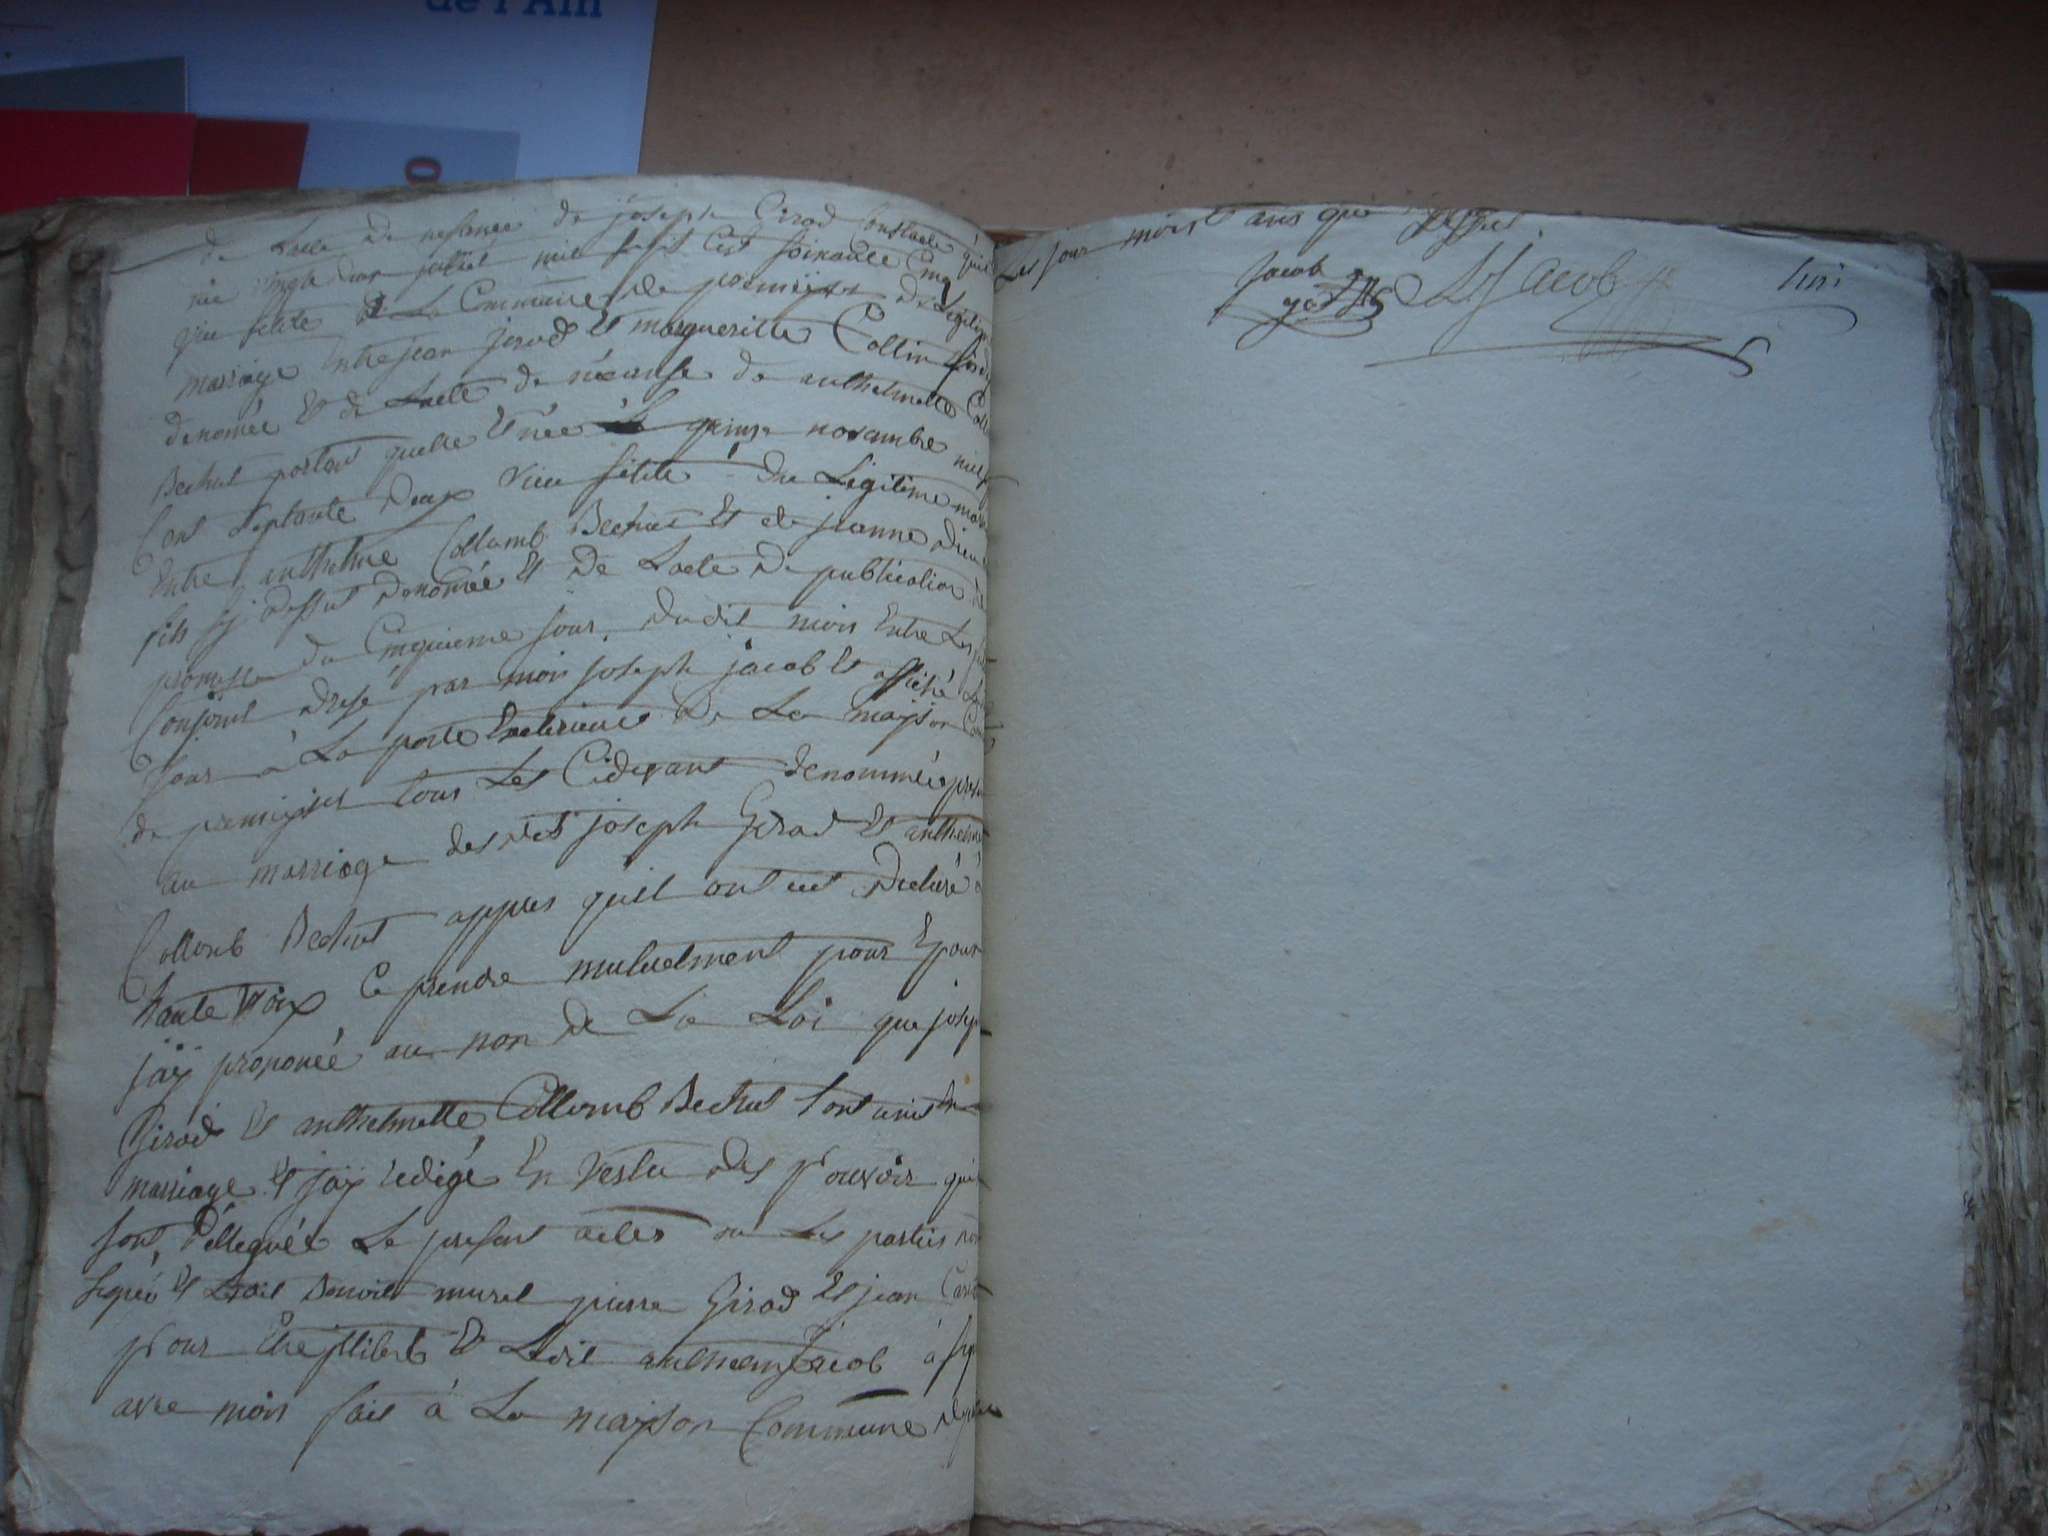 de l'Ain
de Lacte de nesance de joseph Girod Constate quil
nie vingt deux juillet mil sept Cent soixante Cinq
de La Commune de premijset de Legitime
marriage Entre jean jerod et margueritte Collin
denomée et de Lacte de néeanse de anthelmette Coll
Bechut portant quelle et née Le quinse novambre mil
Cent septante deux du Legitime mar
Entre anthelme Collomb Bechut et de jeanne
sy dessut denomée et de Lacte de publication de
promesse du Cinquieme jour dudit mois Entre Les
Conjoint drese par mois joseph jacob et affiché
jour a La porte Exterieure de La maijson Com
de premijset tous Les Cidevant denommée
au marriage des dit joseph Girod et anthelm
Collomb Bechut appres quill ont eut Declaré a
haute voix Ce prendre mutuelment pour Epoux
jaÿ prononcé au non de La Loi que josep
Girod et anthelmette Collomb Bechut sont unit En
marriage et jaÿ redigé En vertu des pouvoir qui
sont délleguée Le present actes Les parties
signée et Benoit murel pierre Girod et jean
pour Etre jlliteré et Ledit anthelme jacob
avec mois fait à La maijson Commune
Les jour mois et ans que dessus
jacob
LJ Jacob